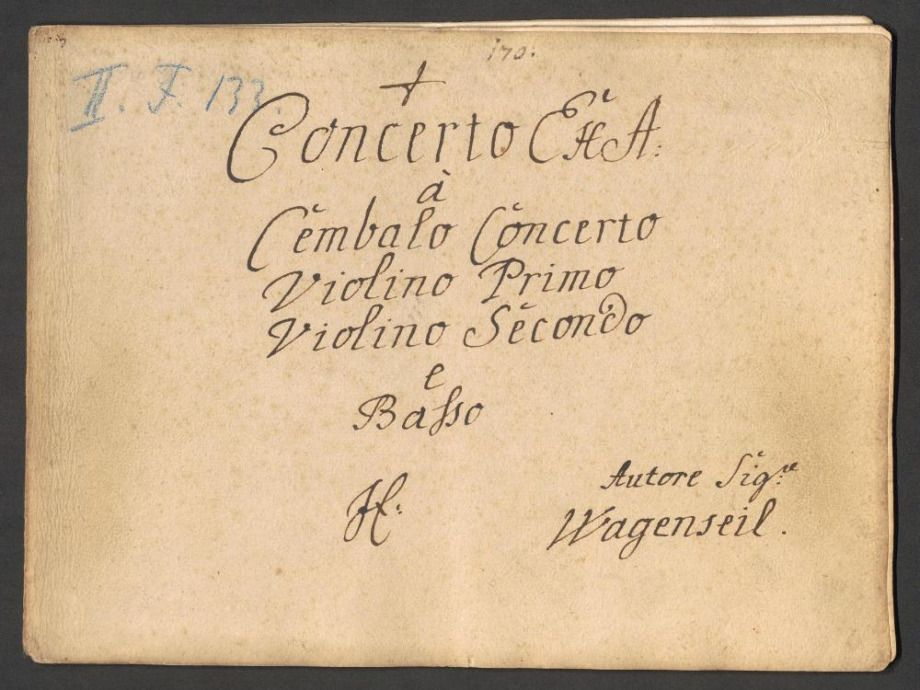 170.
II. F. 133
Concerto Ex A:
à
Cembalo Concerto
Violino Primo
Violino Secondo
e
Basso
H:
Autore Sigre
Wagenseil.